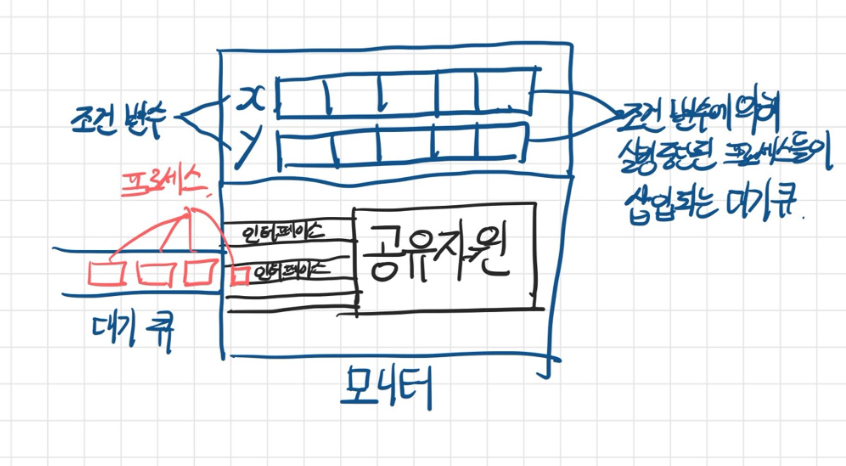 조건 변수
x
y
조건 변수에 의해
실행 중단된 프로세스들이
삽입되는 대기 큐.
프로세스
인터페이스
인터페이스
공유자원
대기 큐
모니터